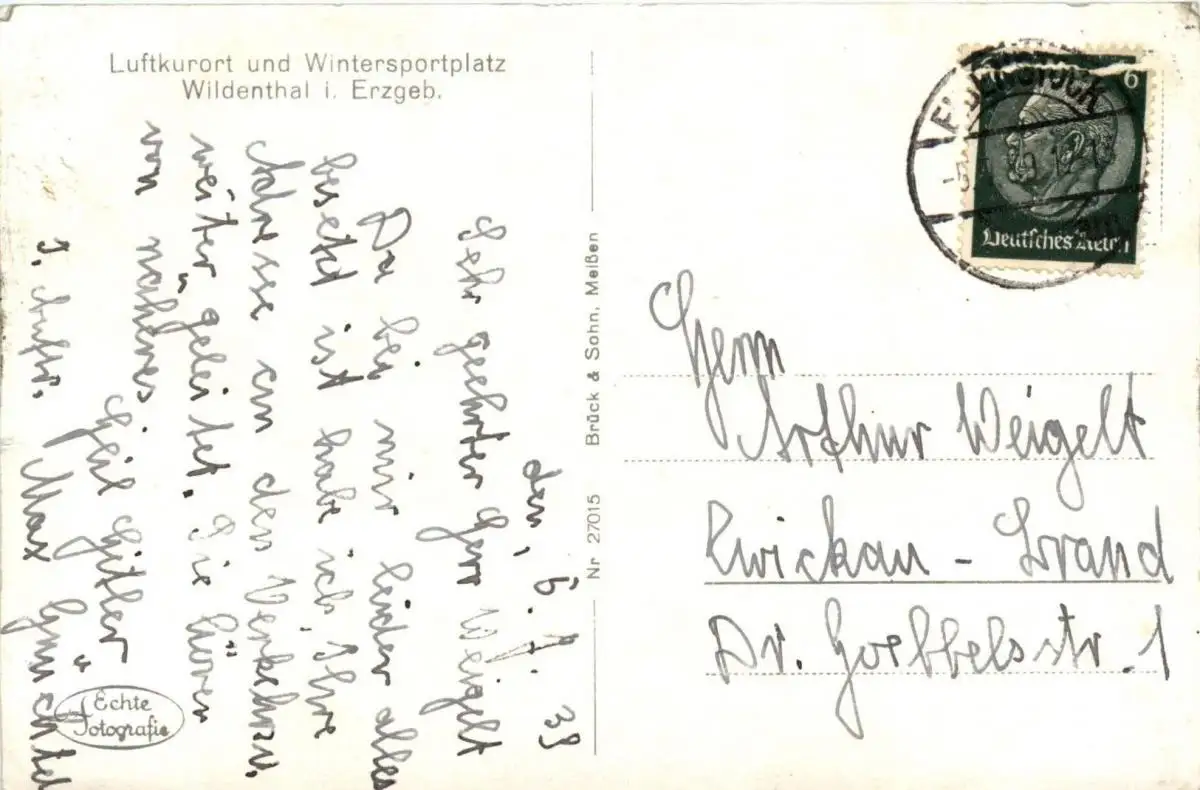 Luftkurort und Wintersportplatz
Wildenthal i. Erzgeb.
den, 6. 7. 39
Sehr geehrter Herr Weigelt
Da bei mir leider alles
besetzt ist habe ich, Ihre
Adresse an den Verkehrsv.
weiter geleitet. Sie hören
von näheres
Heil Hitler"
J. Auftr.
Max
Echte
Fotografie
Nr 27015 Brück & Sohn, Meißen
EIBENSTOCK
6
Deutsches Reich
Herrn
Arthur Weigelt
Zwickau - Brand
Dr. Goebbelsstr. 1